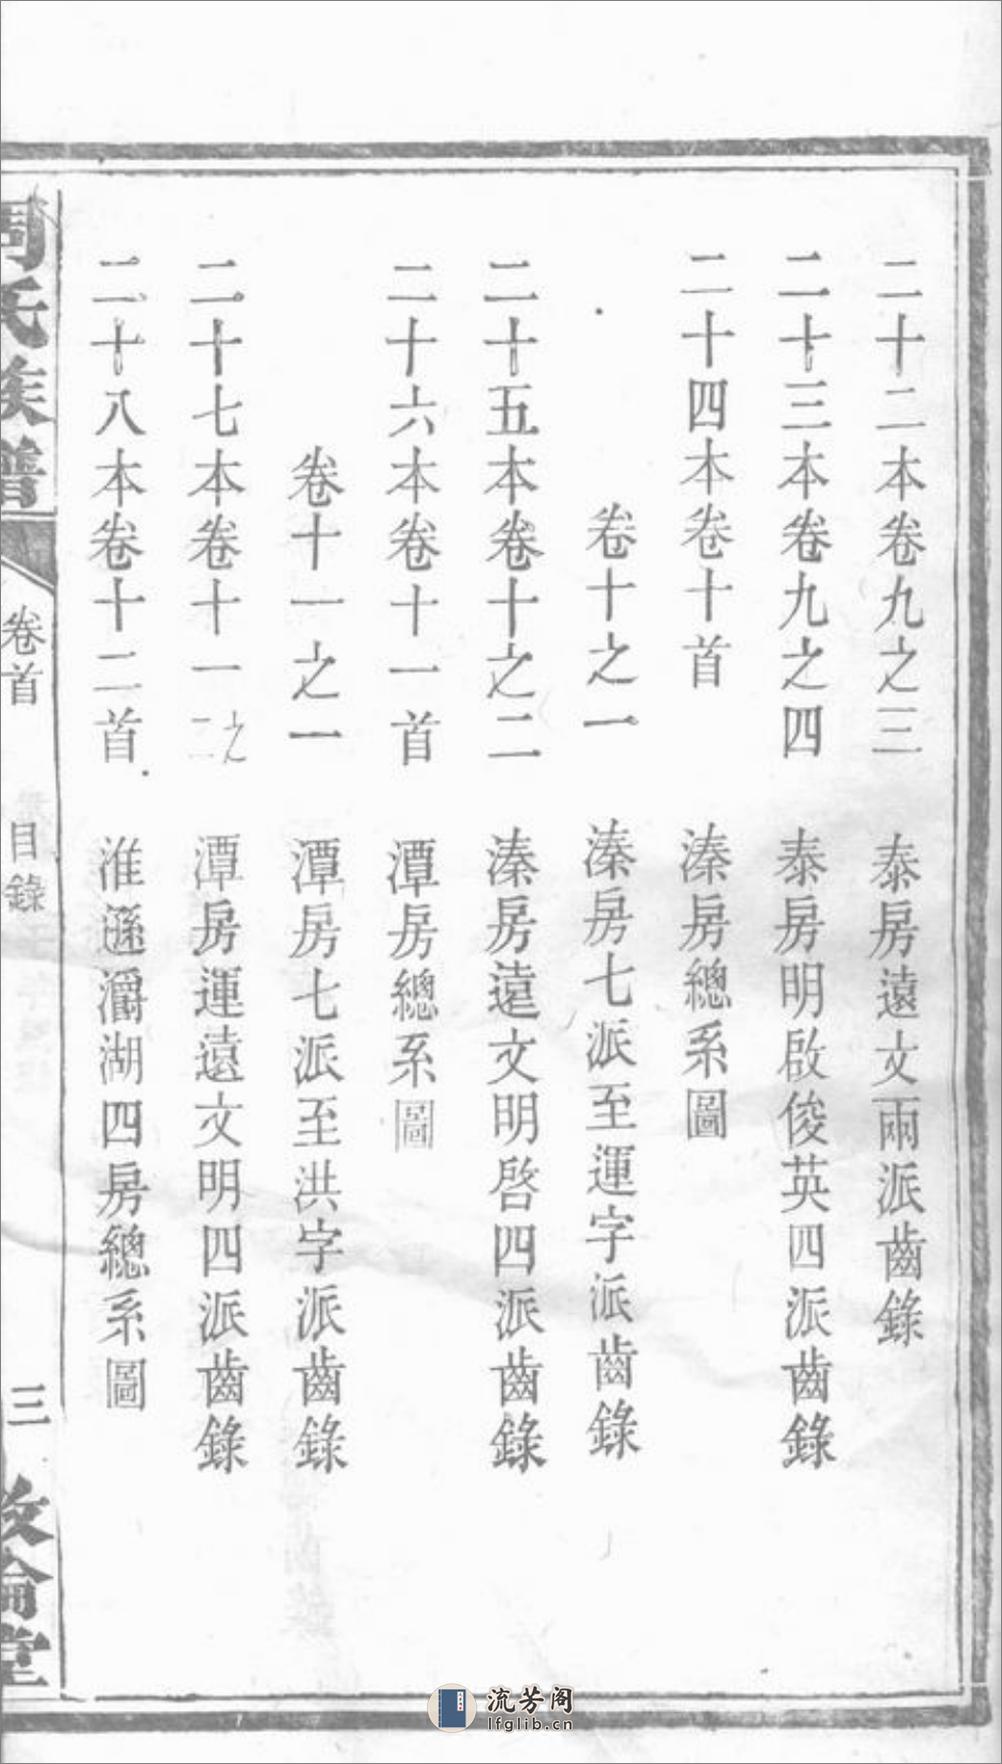 二十二本卷九之三　泰房遠文兩派齒錄
二十三本卷九之四　泰房明啟俊英四派齒錄
二十四本卷十首　溱房總系圖
卷十之一　溱房七派至運字派齒錄
二十五本卷十之二　溱房遠文明啓四派齒錄
二十六本卷十一首　潭房總系圖
卷十一之一　潭房七派至洪字派齒錄
二十七本卷十一之二　潭房運遠文明四派齒錄
二十八本卷十二首　淮遜灂湖四房總系圖
周氏族譜　卷首　目錄　三　敦倫堂
流芳阁
lfglib.cn